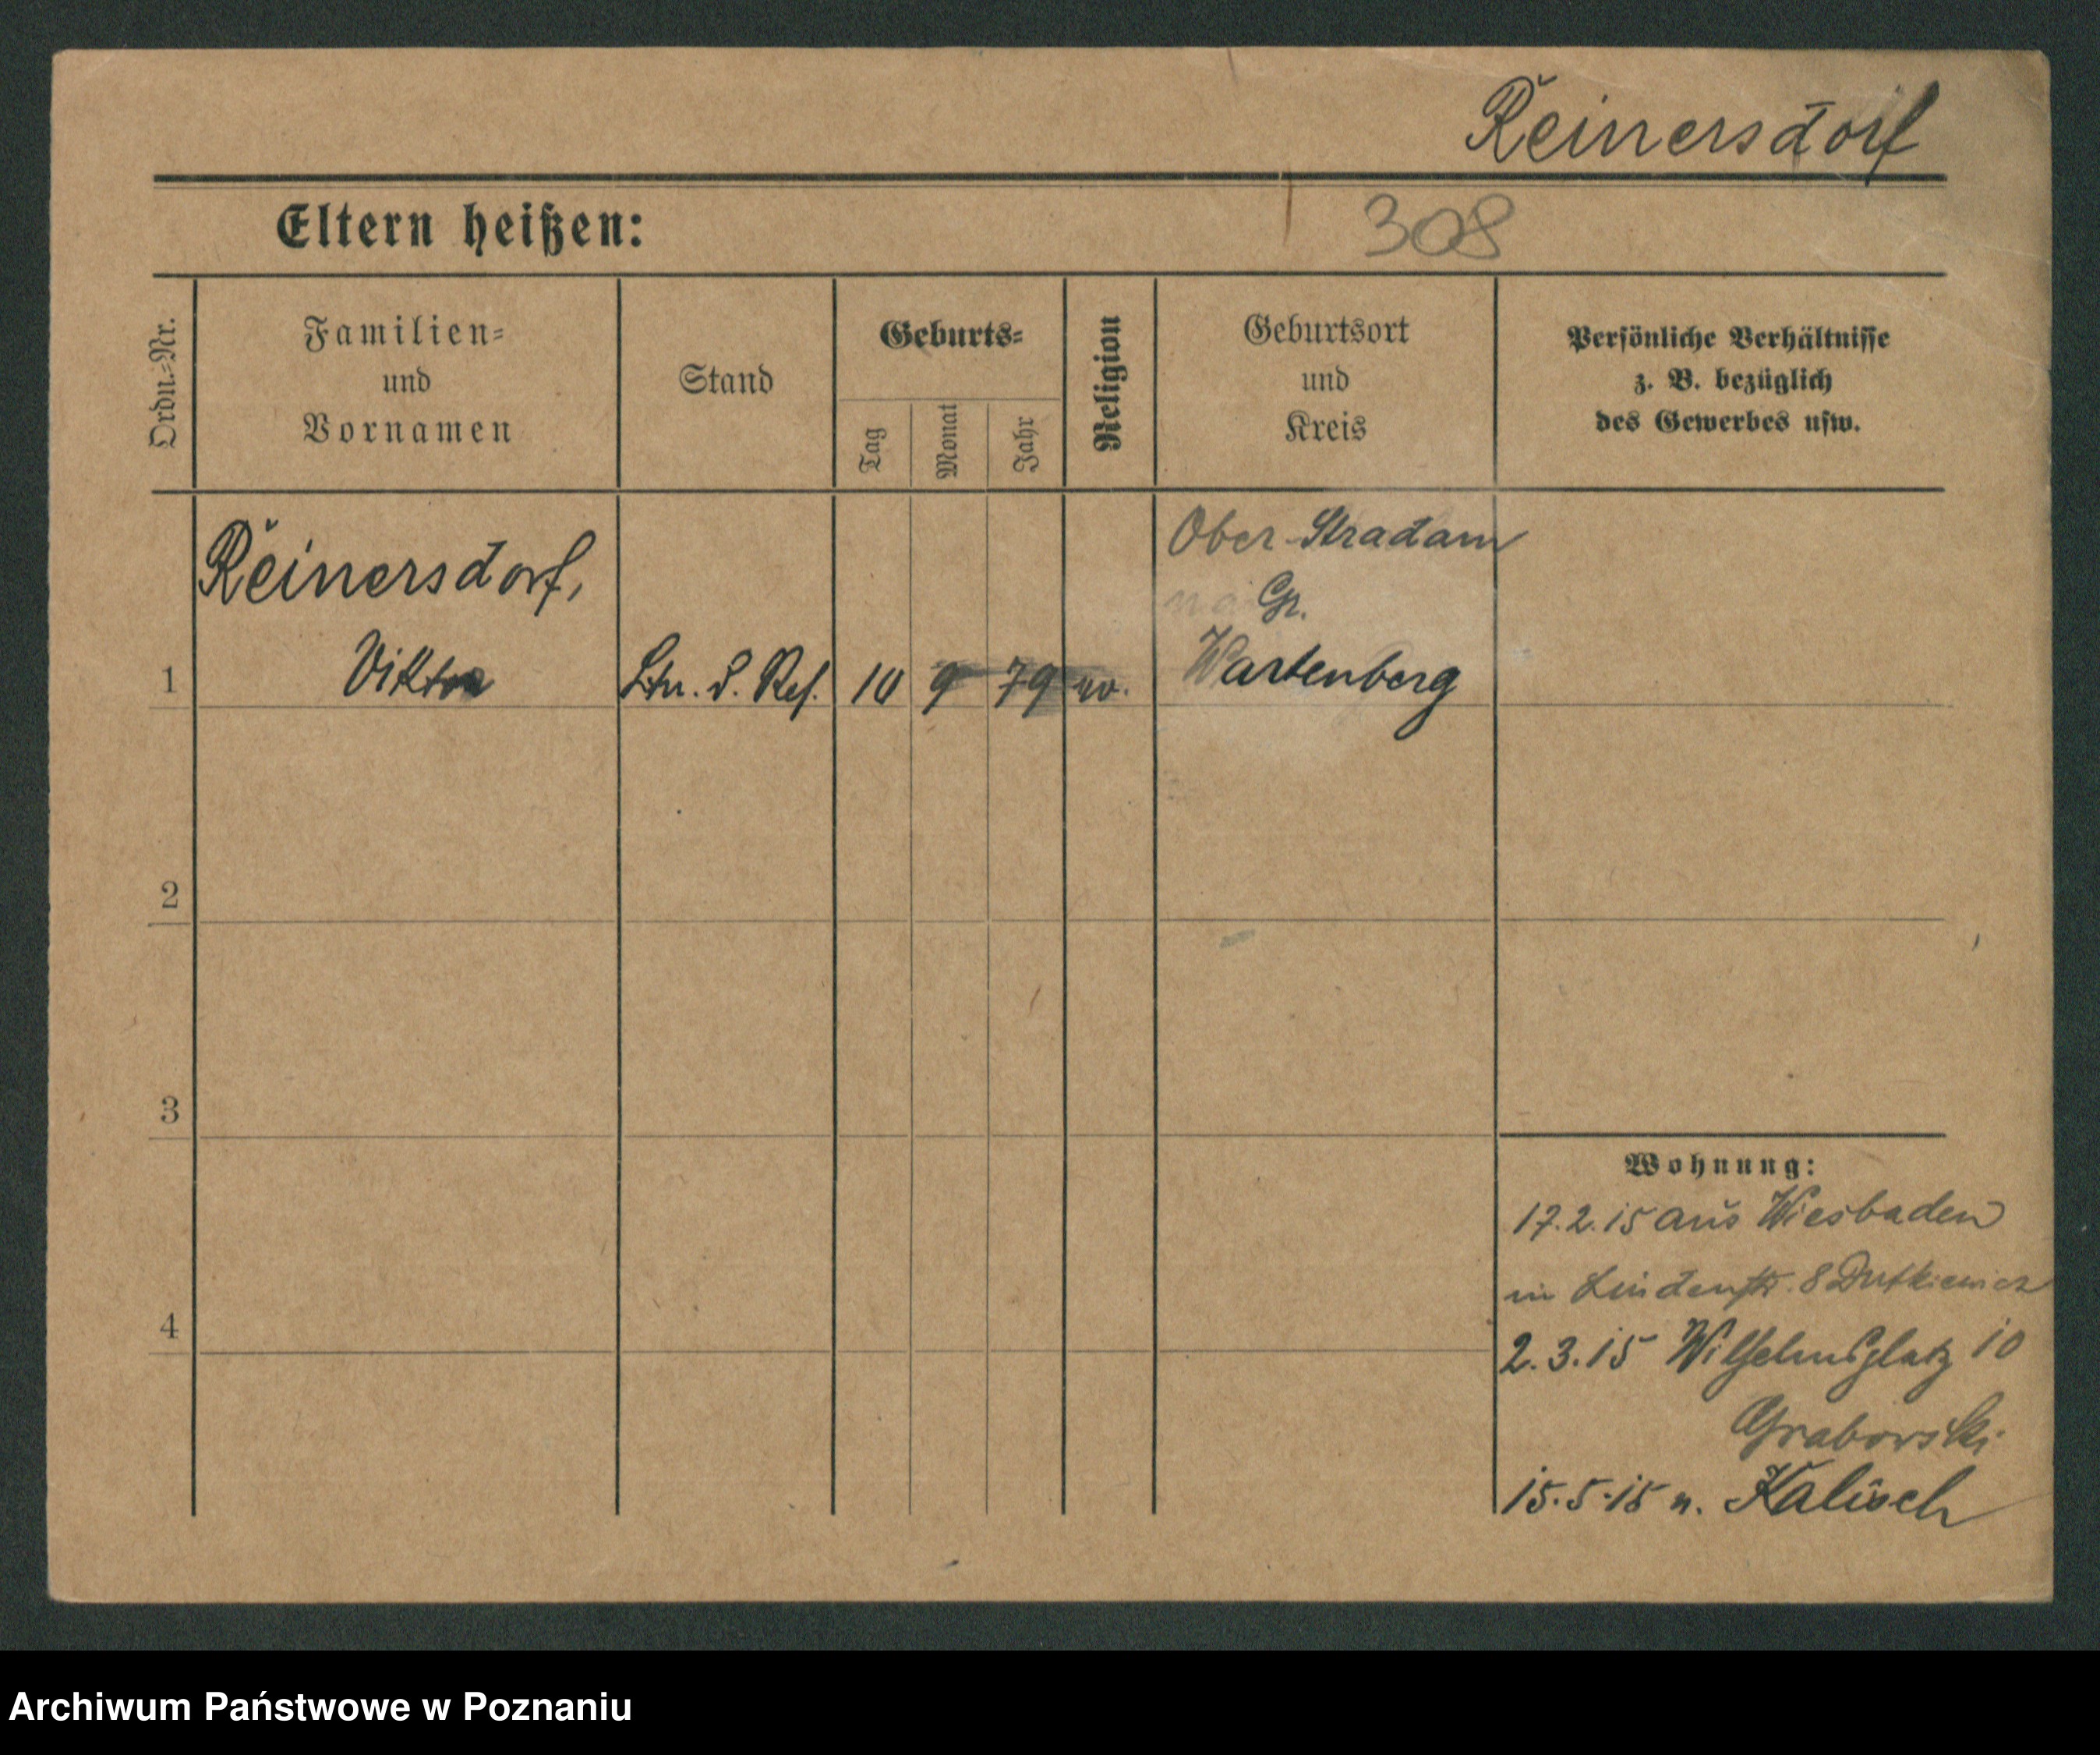 Reinersdorf
Eltern heißen:
308
Ordn.-Nr.
Familien-
und
Vornamen
Stand
Geburts-
Tag
Monat
Jahr
Religion
Geburtsort
und
Kreis
Persönliche Verhältnisse
z. B. bezüglich
des Gewerbes usw.
Ober-Stradam
Gr.
Reinersdorf,
1 Viktor Ltn. d. Res. 10 9 79 ev. Wartenberg
2
3
4
Wohnung:
17.2.15 aus Wiesbaden
in Lindenstr. 8 Dutkiewicz
2.3.15 Wilhelmsplatz 10
Grabowski
15.5.15 n. Kalisch
Archiwum Państwowe w Poznaniu